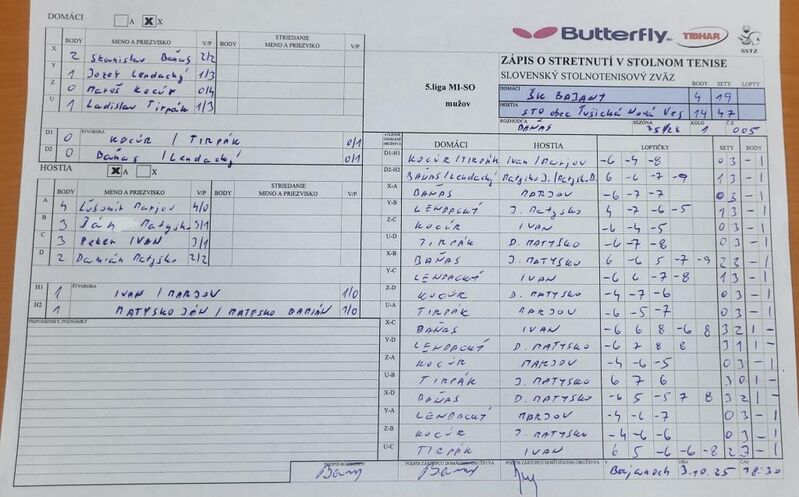 DOMÁCI A X
Butterfly TIBHAR SSTZ
BODY MENO A PRIEZVISKO V/P BODY STRIEDANIE MENO A PRIEZVISKO V/P
X 2 Stanislav Baňas 2/2
Y 1 Jozef Lendacký 1/3
Z 0 Maroš Kocúr 0/4
U 1 Ladislav Tirpák 1/3
D1 0 ŠTVORHRA KOCÚR / TIRPÁK 0/1
D2 0 Baňas / Lendacký 0/1
5.liga MI-SO mužov
ZÁPIS O STRETNUTÍ V STOLNOM TENISE
SLOVENSKÝ STOLNOTENISOVÝ ZVÄZ
BODY SETY LOPTY
DOMÁCI ŠK BAJANY 4 19
HOSTIA STO obec Tušická Nová Ves 14 47
ROZHODCA BAŇAS SEZÓNA 25/26 KOLO 1 Č.Z. 005
HOSTIA X
BODY MENO A PRIEZVISKO V/P BODY STRIEDANIE MENO A PRIEZVISKO V/P
A 4 Ľubomír Marjov 4/0
B 3 Ján Matysko 3/1
C 3 Peter IVAN 3/1
D 2 Damián Matysko 2/2
H1 1 ŠTVORHRA IVAN / MARJOV 1/0
H2 1 MATYSKO JÁN / MATYSKO DAMIÁN 1/0
PRIPOMIENKY, POZNÁMKY
DOMÁCI HOSTIA LOPTIČKY SETY BODY
D1-H1 KOCÚR/TIRPÁK Ivan/Marjov -6 -4 -8 0 3 - 1
D2-H2 BAŇAS/Lendacký Matysko J./Matysk. D. 6 -6 -7 -9 1 3 - 1
X-A BAŇAS MARJOV -6 -7 -7 0 3 - 1
Y-B LENDACKÝ J. Matysko 4 -7 -6 -5 1 3 - 1
Z-C KOCÚR IVAN -6 -4 -5 0 3 - 1
U-D TIRPÁK D. MATYSKO -6 -7 -8 0 3 - 1
X-B BAŇAS J. MATYSKO 6 -6 5 -7 -9 2 3 - 1
Y-C LENDACKÝ IVAN -6 6 -7 -8 1 3 - 1
Z-D KOCÚR D. MATYSKO -4 -7 -6 0 3 - 1
U-A TIRPÁK MARJOV -6 -5 -7 0 3 - 1
X-C BAŇAS IVAN -6 6 8 -6 8 3 2 1 -
Y-D LENDACKÝ D. MATYSKO -6 7 8 8 3 1 1 -
Z-A KOCÚR MARJOV -4 -6 -5 0 3 - 1
U-B TIRPÁK J. MATYSKO 6 7 6 3 0 1 -
X-D BAŇAS D. MATYSKO -6 5 -5 7 8 3 2 1 -
Y-A LENDACKÝ MARJOV -4 -6 -7 0 3 - 1
Z-B KOCÚR J. MATYSKO -4 -6 -6 0 3 - 1
U-C TIRPÁK IVAN 6 5 -6 -6 -8 2 3 - 1
PODPIS ROZHODCU PODPIS ZÁSTUPCU DOMÁCEHO DRUŽSTVA PODPIS ZÁSTUPCU HOSŤUJÚCEHO DRUŽSTVA V Bajanoch DŇA 3.10.25 ČAS 18:30